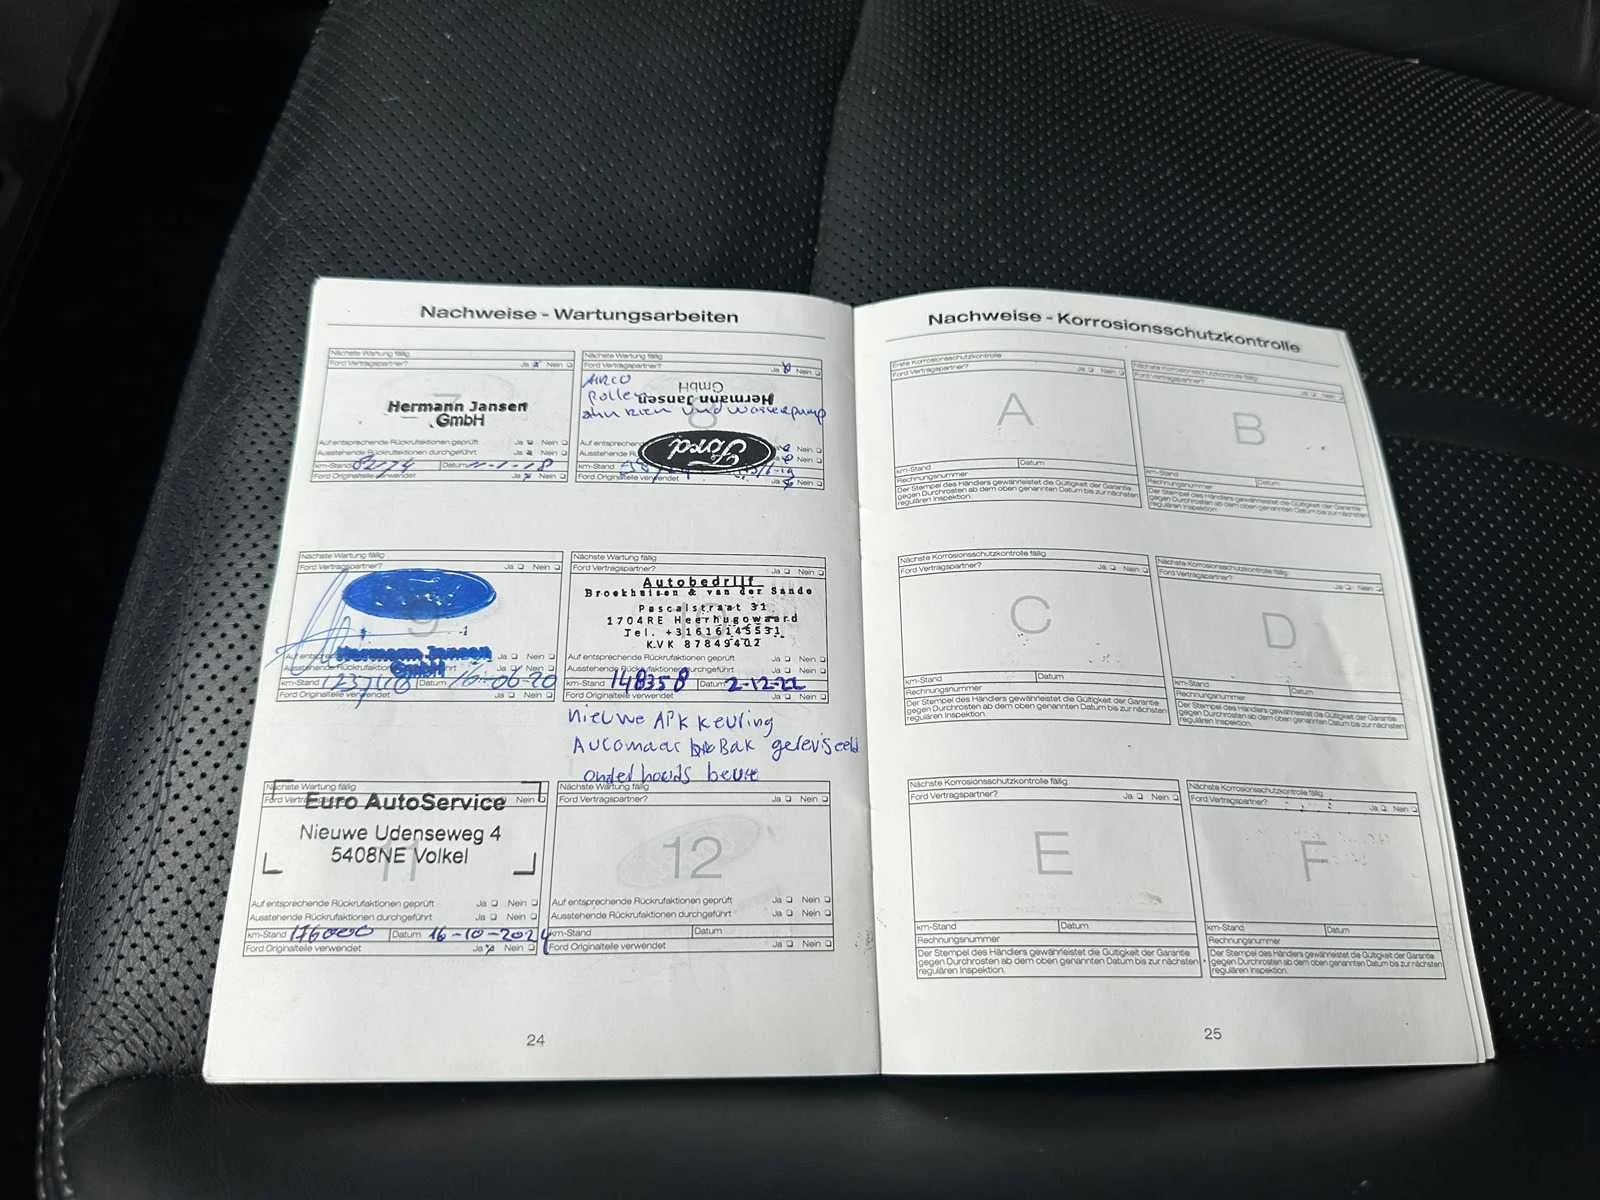 Nachweise - Wartungsarbeiten
Nächste Wartung fällig
Ford Vertragspartner? Ja Nein
Hermann Jansen
GmbH
Auf entsprechende Rückrufaktionen geprüft Ja Nein
Ausstehende Rückrufaktionen durchgeführt Ja Nein
km-Stand Datum
Ford Originalteile verwendet Ja Nein
Nächste Wartung fällig
Ford Vertragspartner? Ja Nein
AIRCO
Hermann Jansen
GmbH
und Wasserpump
8
Ford
Auf entsprechende
Ausstehende
km-Stand
Ford Originalteile verwendet Ja
Nächste Wartung fällig
Ford Vertragspartner? Ja Nein
9
Hermann Jansen
GmbH
Nein
Ausstehende Rückrufaktionen
km-Stand Datum 16-06-20
Ford Originalteile verwendet Ja Nein
Nächste Wartung fällig
Ford Vertragspartner? Ja Nein
Autobedrijf
Broekhuisen & van der Sande
Pascalstraat 31
1704RE Heerhugowaard
Tel. +31616145531
K.V.K 87849402
Auf entsprechende Rückrufaktionen geprüft Ja Nein
Ausstehende Rückrufaktionen durchgeführt Ja Nein
km-Stand 148358 Datum 2-12-22
Ford Originalteile verwendet Ja Nein
nieuwe APK keuring
Automaat Bak gereviseerd
onderhouds beurt
Nächste Wartung fällig
Nein
Euro AutoService
Nieuwe Udenseweg 4
5408NE Volkel
11
Auf entsprechende Rückrufaktionen geprüft Ja Nein
Ausstehende Rückrufaktionen durchgeführt Ja Nein
km-Stand 176000 Datum 16-10-2024
Ford Originalteile verwendet Ja Nein
Nächste Wartung fällig
Ford Vertragspartner? Ja Nein
12
Auf entsprechende Rückrufaktionen geprüft Ja Nein
Ausstehende Rückrufaktionen durchgeführt Ja Nein
km-Stand Datum
Ford Originalteile verwendet Ja Nein
24
Nachweise - Korrosionsschutzkontrolle
Erste Korrosionsschutzkontrolle
Ford Vertragspartner? Ja Nein
A
km-Stand Datum
Rechnungsnummer
Der Stempel des Händlers gewährleistet die Gültigkeit der Garantie
gegen Durchrosten ab dem oben genannten Datum bis zur nächsten
regulären Inspektion.
Nächste Korrosionsschutzkontrolle fällig
Ford Vertragspartner? Ja Nein
B
km-Stand
Rechnungsnummer Datum
Der Stempel des Händlers gewährleistet die Gültigkeit der Garantie
gegen Durchrosten ab dem oben genannten Datum bis zur nächsten
regulären Inspektion.
Nächste Korrosionsschutzkontrolle fällig
Ford Vertragspartner? Ja Nein
C
km-Stand Datum
Rechnungsnummer
Der Stempel des Händlers gewährleistet die Gültigkeit der Garantie
gegen Durchrosten ab dem oben genannten Datum bis zur nächsten
regulären Inspektion.
Nächste Korrosionsschutzkontrolle fällig
Ford Vertragspartner? Ja Nein
D
km-Stand Datum
Rechnungsnummer
Der Stempel des Händlers gewährleistet die Gültigkeit der Garantie
gegen Durchrosten ab dem oben genannten Datum bis zur nächsten
regulären Inspektion.
Nächste Korrosionsschutzkontrolle fällig
Ford Vertragspartner? Ja Nein
E
km-Stand Datum
Rechnungsnummer
Der Stempel des Händlers gewährleistet die Gültigkeit der Garantie
gegen Durchrosten ab dem oben genannten Datum bis zur nächsten
regulären Inspektion.
Nächste Korrosionsschutzkontrolle fällig
Ford Vertragspartner? Ja Nein
F
km-Stand Datum
Rechnungsnummer
Der Stempel des Händlers gewährleistet die Gültigkeit der Garantie
gegen Durchrosten ab dem oben genannten Datum bis zur nächsten
regulären Inspektion.
25